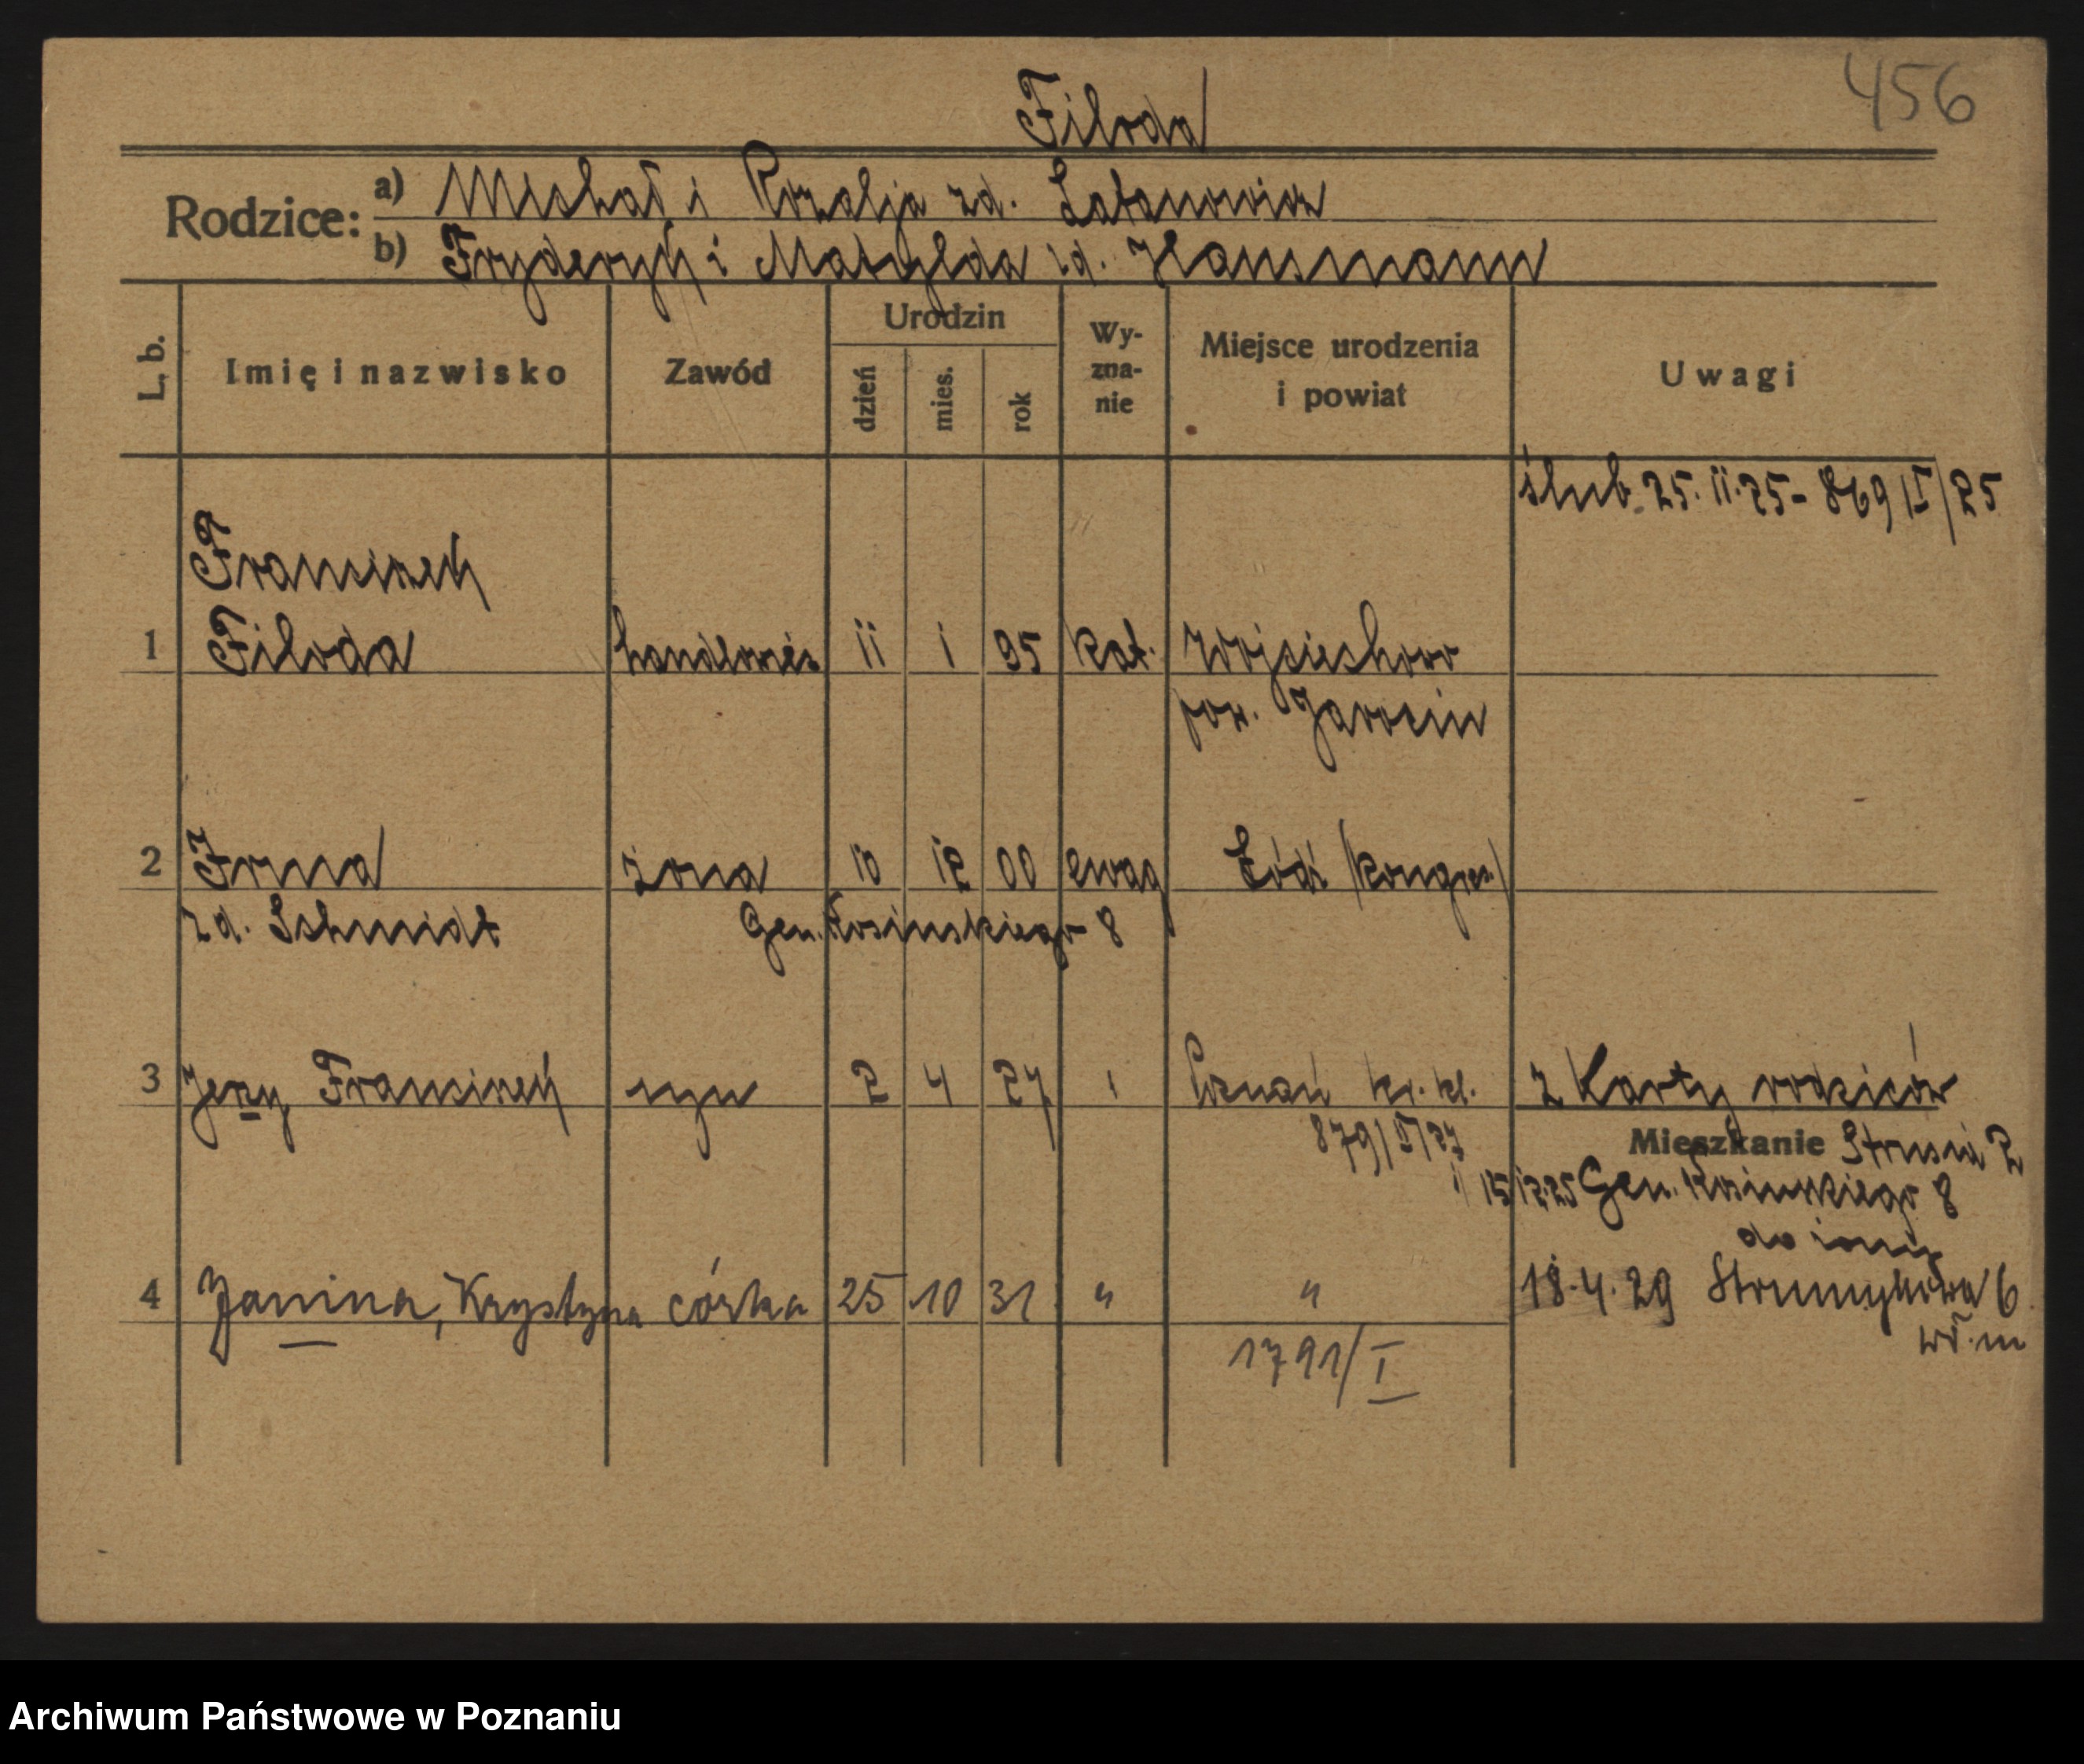 456
Filoda
Rodzice: a) Michał i Rozalja zd. Łatanowicz
b) Fryderyk i Matylda zd. Hansmann
L. b. Imię i nazwisko Zawód Urodzin dzień mies. rok Wyznanie Miejsce urodzenia i powiat Uwagi
ślub 25. 11. 25 - 869 II/25
Franciszek
1 Filoda handlowiec 11 1 95 kat. Wojciechowo
pow. Jarocin
2 Irma żona 10 12 00 ewag Łódź /kongres./
zd. Schmidt Gen. Kosinskiego 8
3 Jerzy Franciszek syn 2 4 27 Poznań
z Karty rodziców
Mieszkanie Strusia 2
15/12.25 Gen. Kosinskiego 8
4 Janina, Krystyna córka 25 10 31 " "
18. 4. 29 Strumykowa 6
1791/I
Archiwum Państwowe w Poznaniu